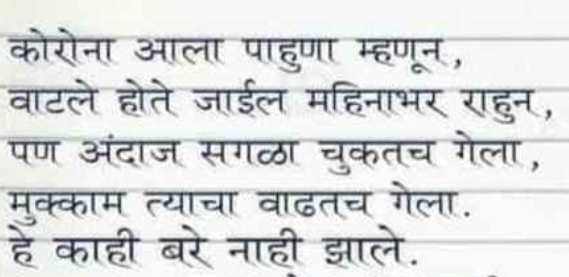 कोरोना आला पाहुणा म्हणून,
वाटले होते जाईल महिनाभर राहुन,
पण अंदाज सगळा चुकतच गेला,
मुक्काम त्याचा वाढतच गेला.
हे काही बरे नाही झाले.